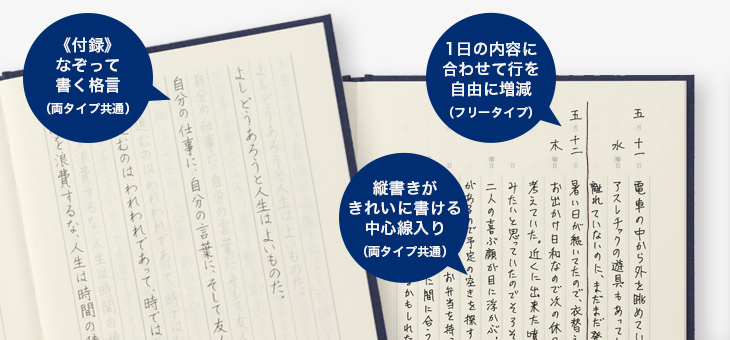 《付録》
なぞって
書く格言
（両タイプ共通）
1日の内容に
合わせて行を
自由に増減
（フリータイプ）
縦書きが
きれいに書ける
中心線入り
（両タイプ共通）
よしどうあろうと人生はよいものだ。
自分の仕事に、自分の言葉に、そして友人
むのはわれわれであって、時では
を浪費するな、人生は時間の積
五月十一日
水曜日
電車の中から外を眺めてい
アスレチックの遊具もあって
離れていないのに、まだまだ発
五月十二日
木曜日
暑い日が続いてたので、衣替え
お出かけ日和なので次の休
考えていた。近くに出来た
みたいと思っていたのでそろそ
二人の喜ぶ顔が目に浮かぶ。
ので予定の空きを探す
お弁当を持
に間に合う
かもしれた